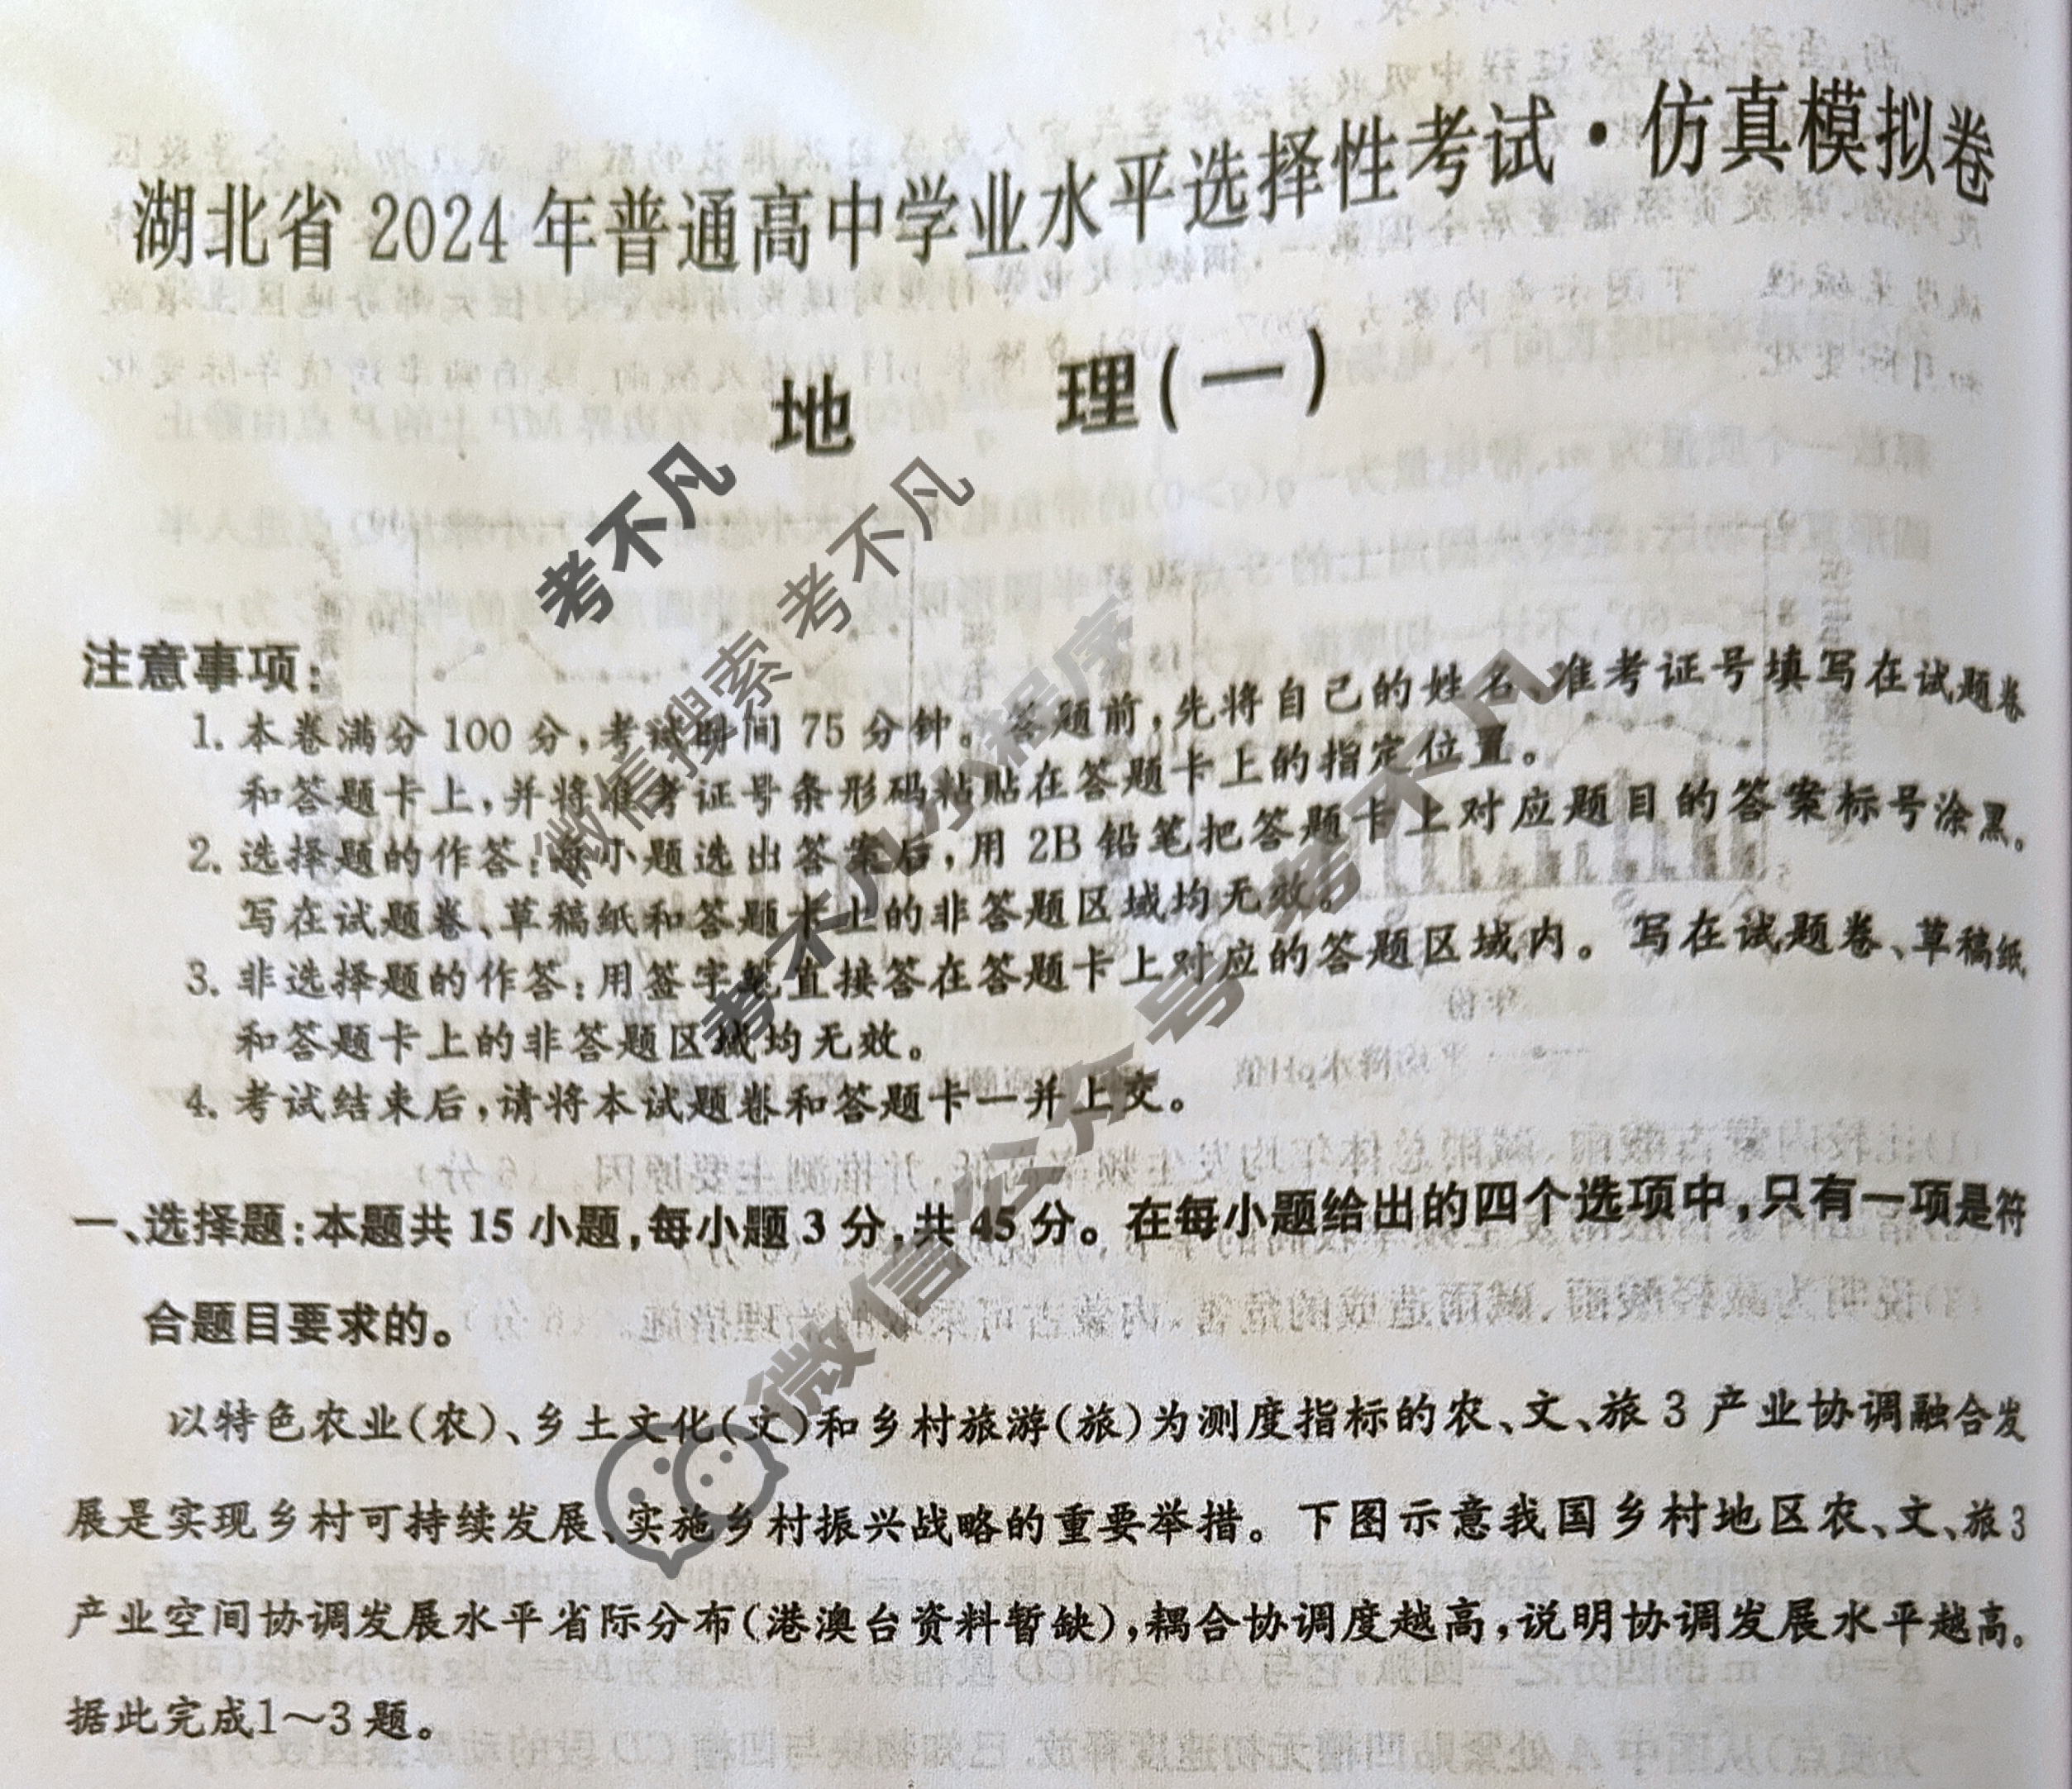 湖北省 2024 年普通高中学业水平选择性考试·仿真模拟卷
地 理(一)
考不凡
微信搜索 考不凡
考不凡小程序
微信公众号 考不凡
注意事项:
1. 本卷满分 100 分,考试时间 75 分钟。答题前,先将自己的姓名、准考证号填写在试题卷
和答题卡上,并将准考证号条形码粘贴在答题卡上的指定位置。
2. 选择题的作答:每小题选出答案后,用 2B 铅笔把答题卡上对应题目的答案标号涂黑。
写在试题卷、草稿纸和答题卡上的非答题区域均无效。
3. 非选择题的作答:用签字笔直接答在答题卡上对应的答题区域内。写在试题卷、草稿纸
和答题卡上的非答题区域均无效。
4. 考试结束后,请将本试题卷和答题卡一并上交。
一、选择题:本题共 15 小题,每小题 3 分,共 45 分。在每小题给出的四个选项中,只有一项是符
合题目要求的。
以特色农业(农)、乡土文化(文)和乡村旅游(旅)为测度指标的农、文、旅 3 产业协调融合发
展是实现乡村可持续发展、实施乡村振兴战略的重要举措。下图示意我国乡村地区农、文、旅 3
产业空间协调发展水平省际分布(港澳台资料暂缺),耦合协调度越高,说明协调发展水平越高。
据此完成1～3 题。